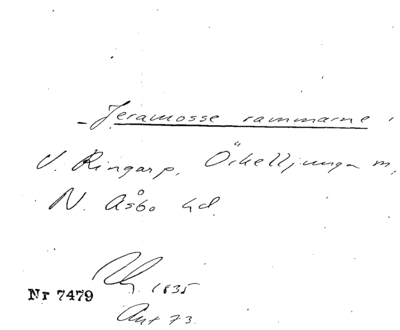 Jeramosse rammarne
V. Ringarp, Örkelljunga
N. Åsbo hd.
1835
Nr 7479
Akt 73